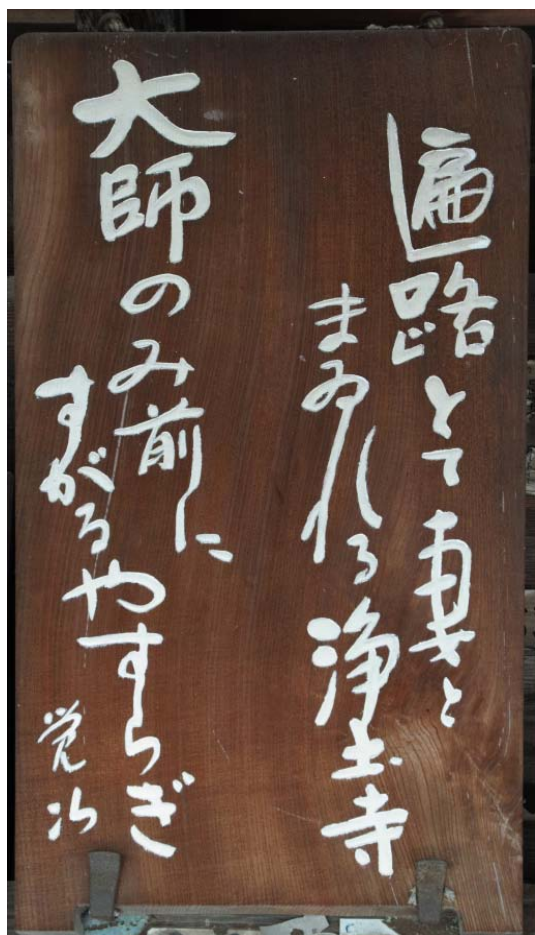 遍路とて妻と
まゐれる浄土寺
大師のみ前に
すがるやすらぎ
覚